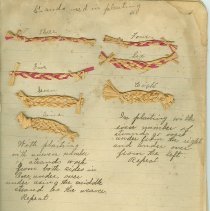 Strands used in plaiting
Three
Four
Five
Six
Seven
Eight
Nine
With plaiting
with uneven number
of strands work
from both sides in
over under over
under using the middle
strand as the weaver
Repeat.
In plaiting with
even number of
strands go over
under from the right
and under over
from the left
Repeat